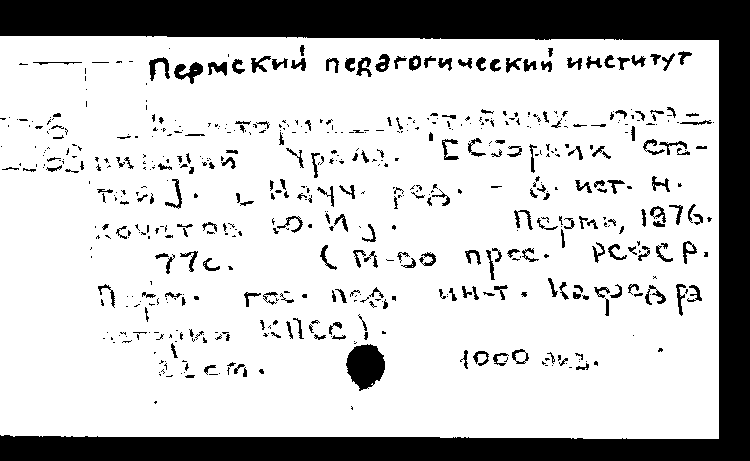 Пермский педагогический институт
Из истории партийных орга-
низаций Урала. [Сборник ста-
тей]. [Науч. ред. - д. ист. н.
Кочетов Ю. И.]. Пермь, 1976.
77с. (М-во прос. РСФСР.
Перм. гос. пед. ин-т. Кафедра
истории КПСС).
22см. 1000 экз.